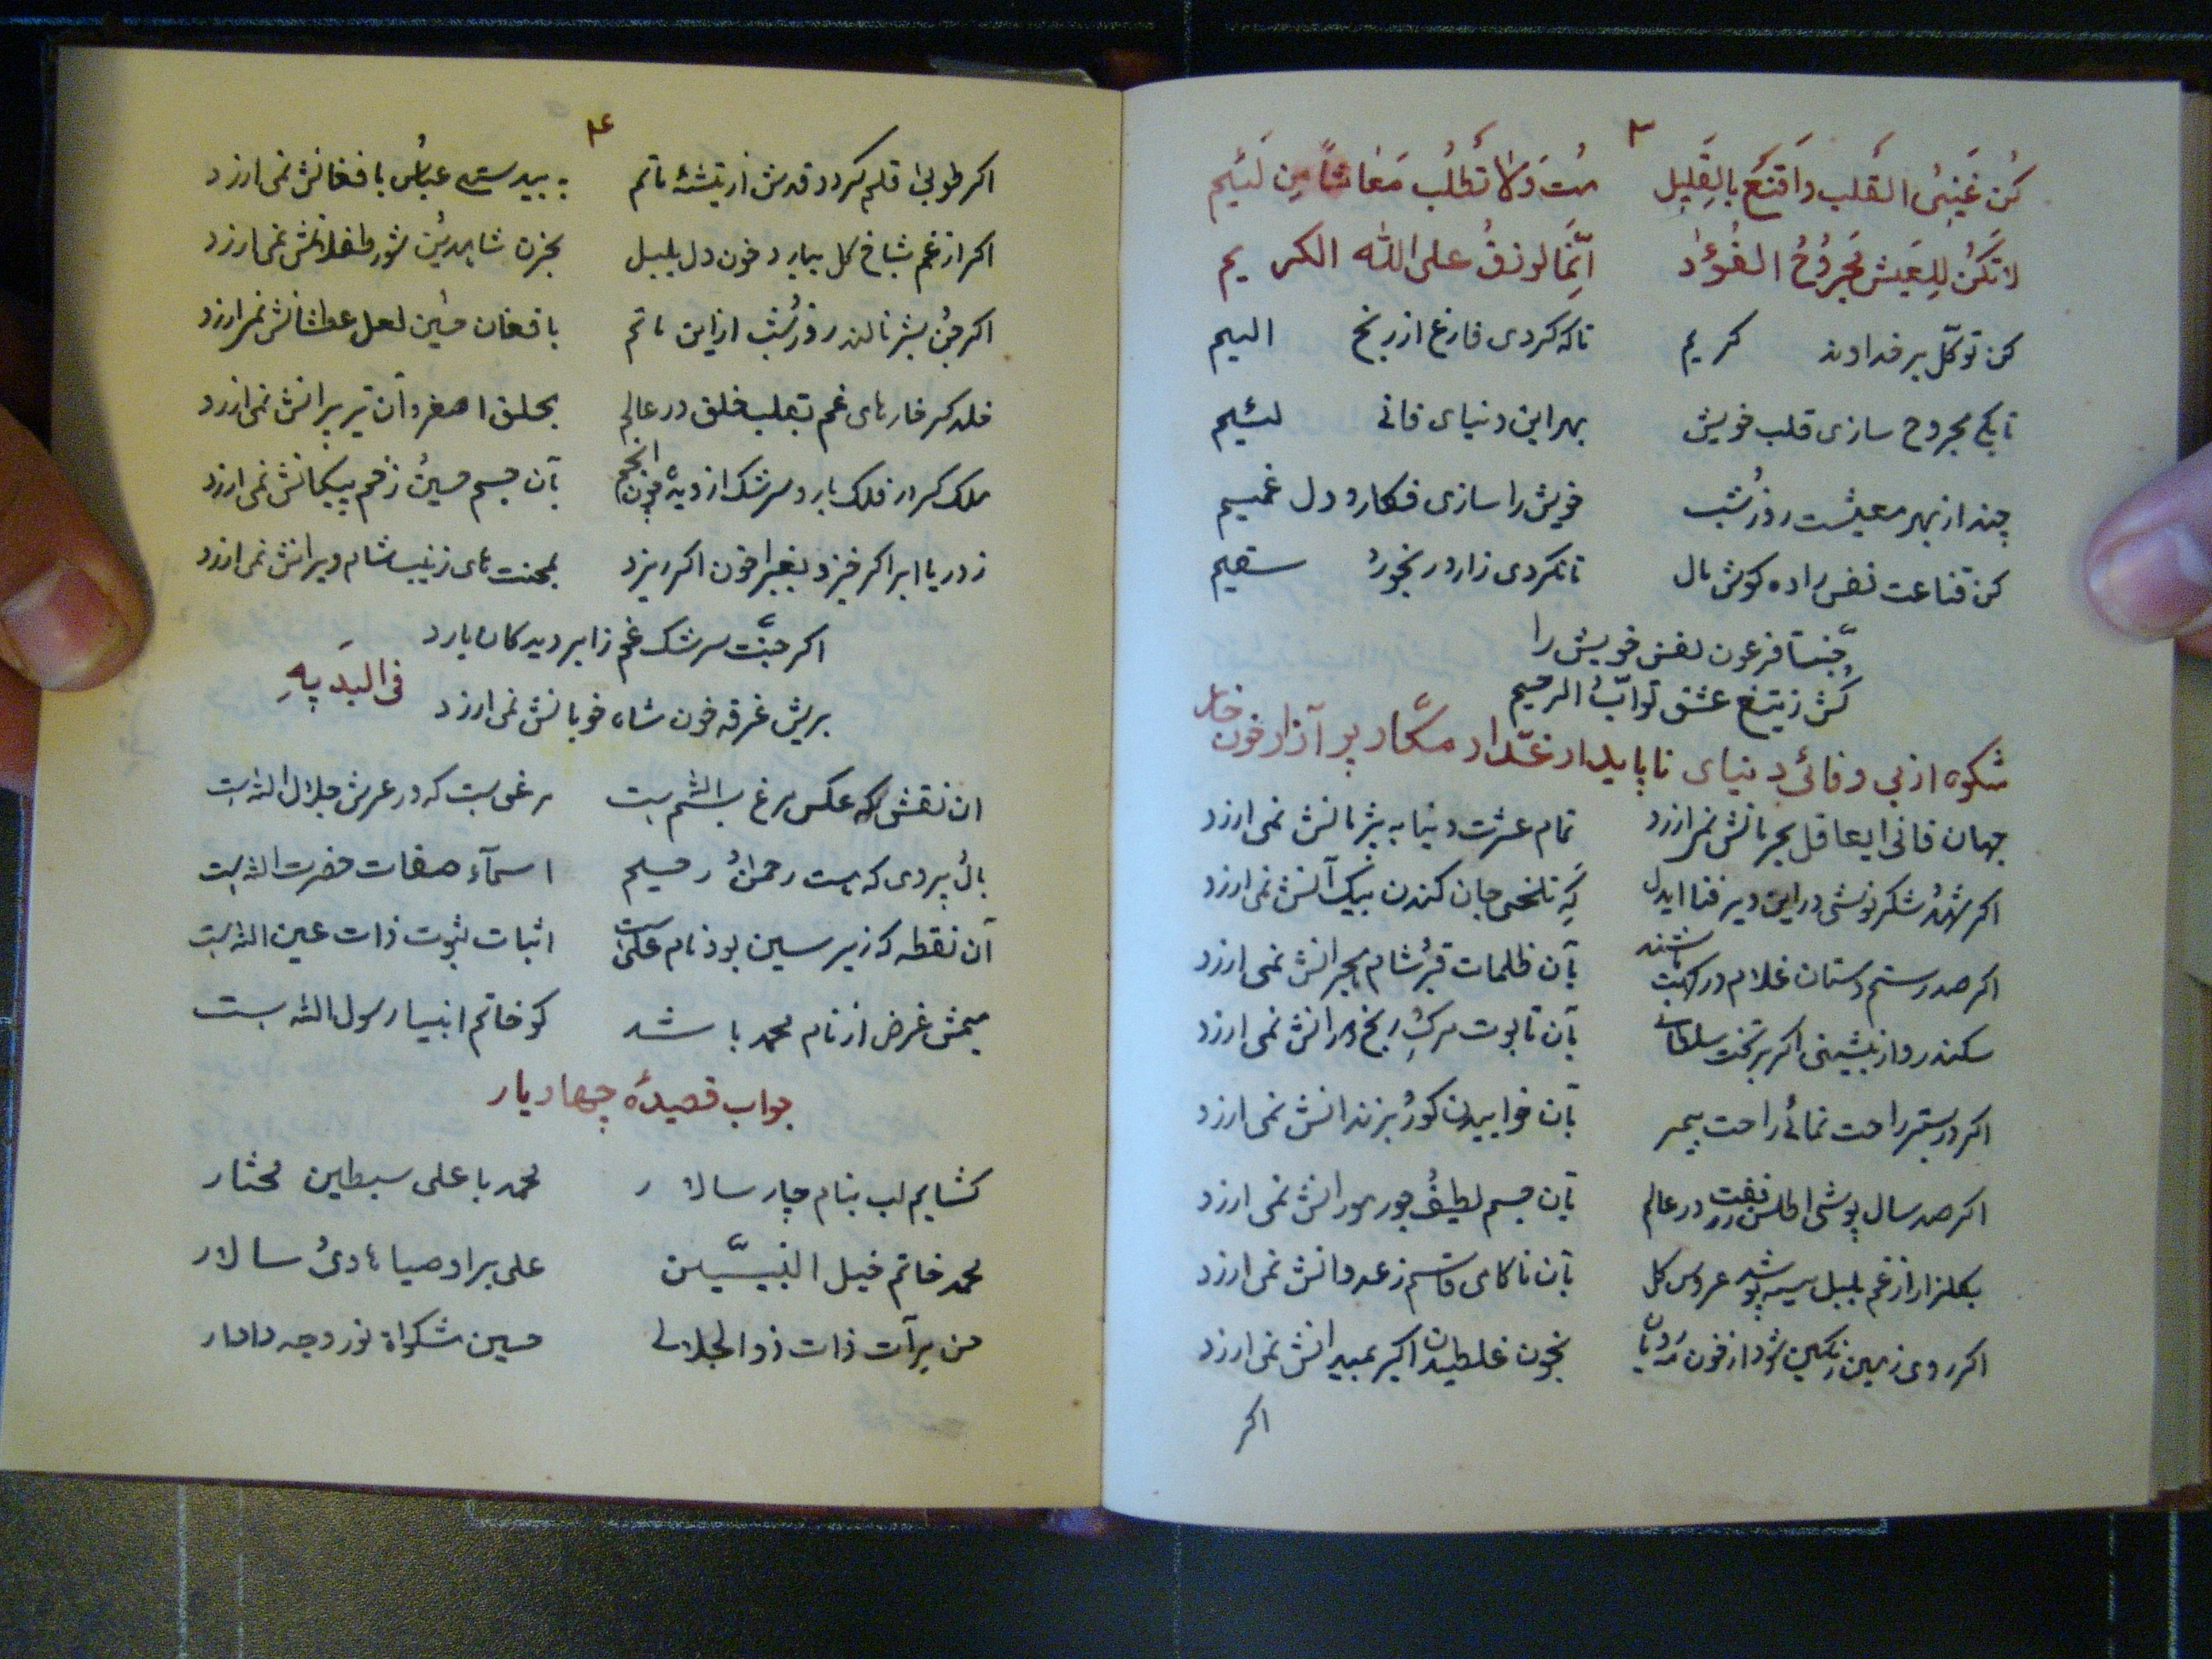 ٣
كُن غَنِیُ القَلب وَاقنَع بِالقَلِیلِ مُت وَلا تَطلُب مَعاشاً مِن لَئیم
لا تَكُن لِلعَیش مَجرُوحُ الفُؤاد اِنَّمَا الرزقُ علی الله الكریم
کن توکّل بر خداوند کریم تا که کردی فارغ از رنج الیم
تا بکی مجروح سازی قلب خویش بهر این دنیای فانی لئیم
چند از بهر معیشت روز شب خویش را سازی فکار و دل غمیم
کن قناعت نفس را ده کوش مال تا نکردی زار و رنجور سقیم
جنّتا فرعون نفس خویش را
کُش ز تیغ عشق توابُ الرحیم
شکوه از بی وفائی دنیای ناپایدار غدّار مکّار پر آزار خون
جهان فانی ایعاقل بجرمانش نمی ارزد تمام عشرت دنیا به پژمانش نمی ارزد
اکر شهدُ شکر نوشی در این دیر فنا ایدل که تلخی جان کندن بیک آنش نمی ارزد
اکر صد رستم دستان غلام درکهت شند بآن ظلمات قبرُ شام هجرانش نمی ارزد
سکندروار بنشینی اکر بر تخت سلطانی بآن تابوت مرکِ رنج دورانش نمی ارزد
اکر در بستر راحت نمائی راحت بیمر بآن خوابیدن کورُ بزندانش نمی ارزد
اکر صد سال پوشی اطلس زربفت در عالم بآن جسم لطیفُ جور مورانش نمی ارزد
بکلزار از غم بلبل سیه پوشد عروس کل بآن ناکامی قاسم ز عدوانش نمی ارزد
اکر روی زمین رنکین شود از خون بخون غلطیدن اکبر بمیدانش نمی ارزد
اکر
۴
اکر طوبی قلم کردد قدش از تیشئه ماتم به بیدستی عباس با فغانش نمی ارزد
اکر از غم بشاخ کل ببارد خون دل بلبل بحزن شاهدینُ شور طفلانش نمی ارزد
اکر جنُ بشر نالند روز شب از این ماتم بافغان حسین لعل عطشانش نمی ارزد
خلد کر خارهای غم بقلب خلق در عالم بحلق اصغر و آن تیر پرانش نمی ارزد
ملک کر در فلک بارد سرشک از دیدهٔ خون انجم بآن جسم حسینُ زخم پیکانش نمی ارزد
ز دریا ابر اکر خیزد بغبرا خون اکر ریزد بمحنت های زینب شام ویرانش نمی ارزد
اکر جنّت سرشک غم ز ابر دیدکان بارد
بریش غرقه خون شاه خوبانش نمی ارزد
فی البدیهِ
ان نقش که عکس مرغ بسم الله است مرغی است که در عرش جلال الله است
بالُ پر وی که هست رحمنُ رحیم اسمآء صفات حضرت الله است
آن نقطه که زیر سین بود نام علی است اثبات ثبوت ذات عین الله است
میمش غرض از نام محمد باشد کو خاتم انبیا رسول الله است
جواب قصیدهٔ چهار یار
کشایم لب بنام چار سالار محمد با علی سبطین مختار
محمد خاتم خیل النبیّین علی بر اوصیا هادیُ سالار
حسن مرآت ذات ذوالجلالی حسین مشکواة نور وجه دادار